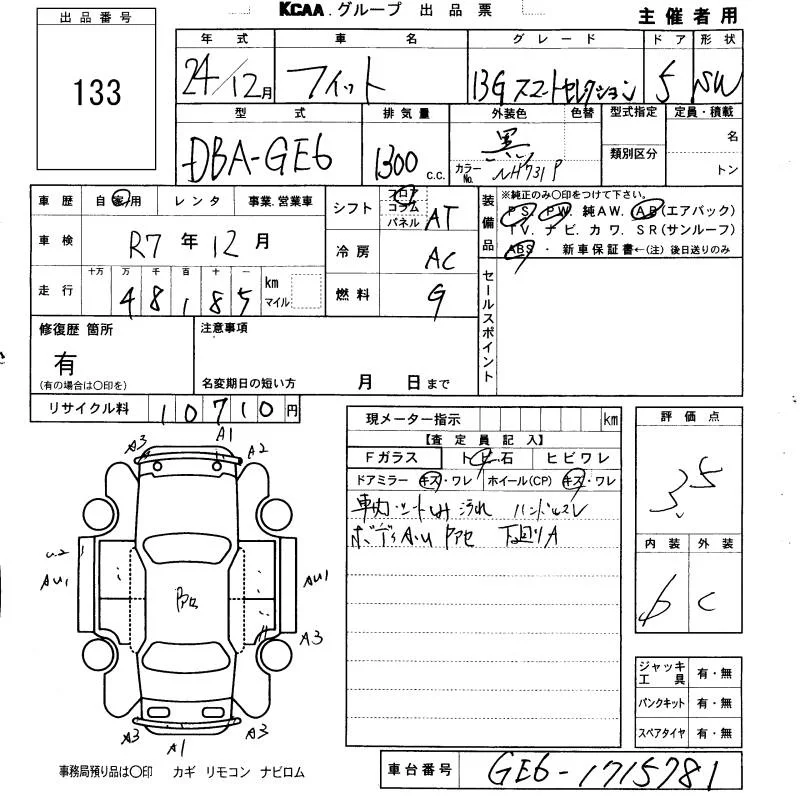 KCAA.グループ 出品票
主催者用
出品番号
133
年式 車名 グレード ドア 形状
24/12月 フィット 13G スマートセレクション 5 SW
型式 排気量 外装色 色替 型式指定 定員・積載
DBA-GE6 1300 c.c. 黒 カラーNo. NH731P 類別区分 名 トン
車歴 自家用 レンタ 事業.営業車
車検 R7年12月
走行 十万 万 千 百 十 一 km マイル
48185
シフト フロア コラム パネル AT
冷房 AC
燃料 G
装備品 ※純正のみ〇印をつけて下さい。
PS. PW. 純AW. AB(エアバック)
TV. ナビ. カワ. SR(サンルーフ)
ABS・新車保証書←(注)後日送りのみ
セールスポイント
修復歴 箇所
有
(有の場合は〇印を)
注意事項
名変期日の短い方 月 日まで
リサイクル料 10710円
現メーター指示 km
【査定員記入】
Fガラス トビ石 ヒビワレ
ドアミラー キズ・ワレ ホイール(CP) キズ・ワレ
車内シート 汚れ ハンドルスレ
ボディA.U 下廻りA
評価点
3.5
内装 外装
C
ジャッキ工具 有・無
パンクキット 有・無
スペアタイヤ 有・無
A3 A1 A2
U2
AU1 AU1
A3
A3 A1 A3
事務局預り品は〇印 カギ リモコン ナビロム
車台番号 GE6-1715781